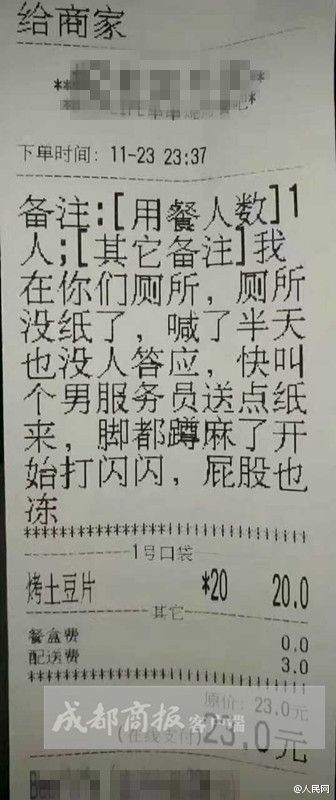 给商家
下单时间：11-23 23:37
备注:[用餐人数]1
人;[其它备注]我
在你们厕所，厕所
没纸了，喊了半天
也没人答应，快叫
个男服务员送点纸
来，脚都蹲麻了开
始打闪闪，屁股也
冻
1号口袋
烤土豆片 *20 20.0
其它
餐盒费 0.0
配送费 3.0
原价：23.0元
成都商报客户端
(在线支付)23.0元
@人民网